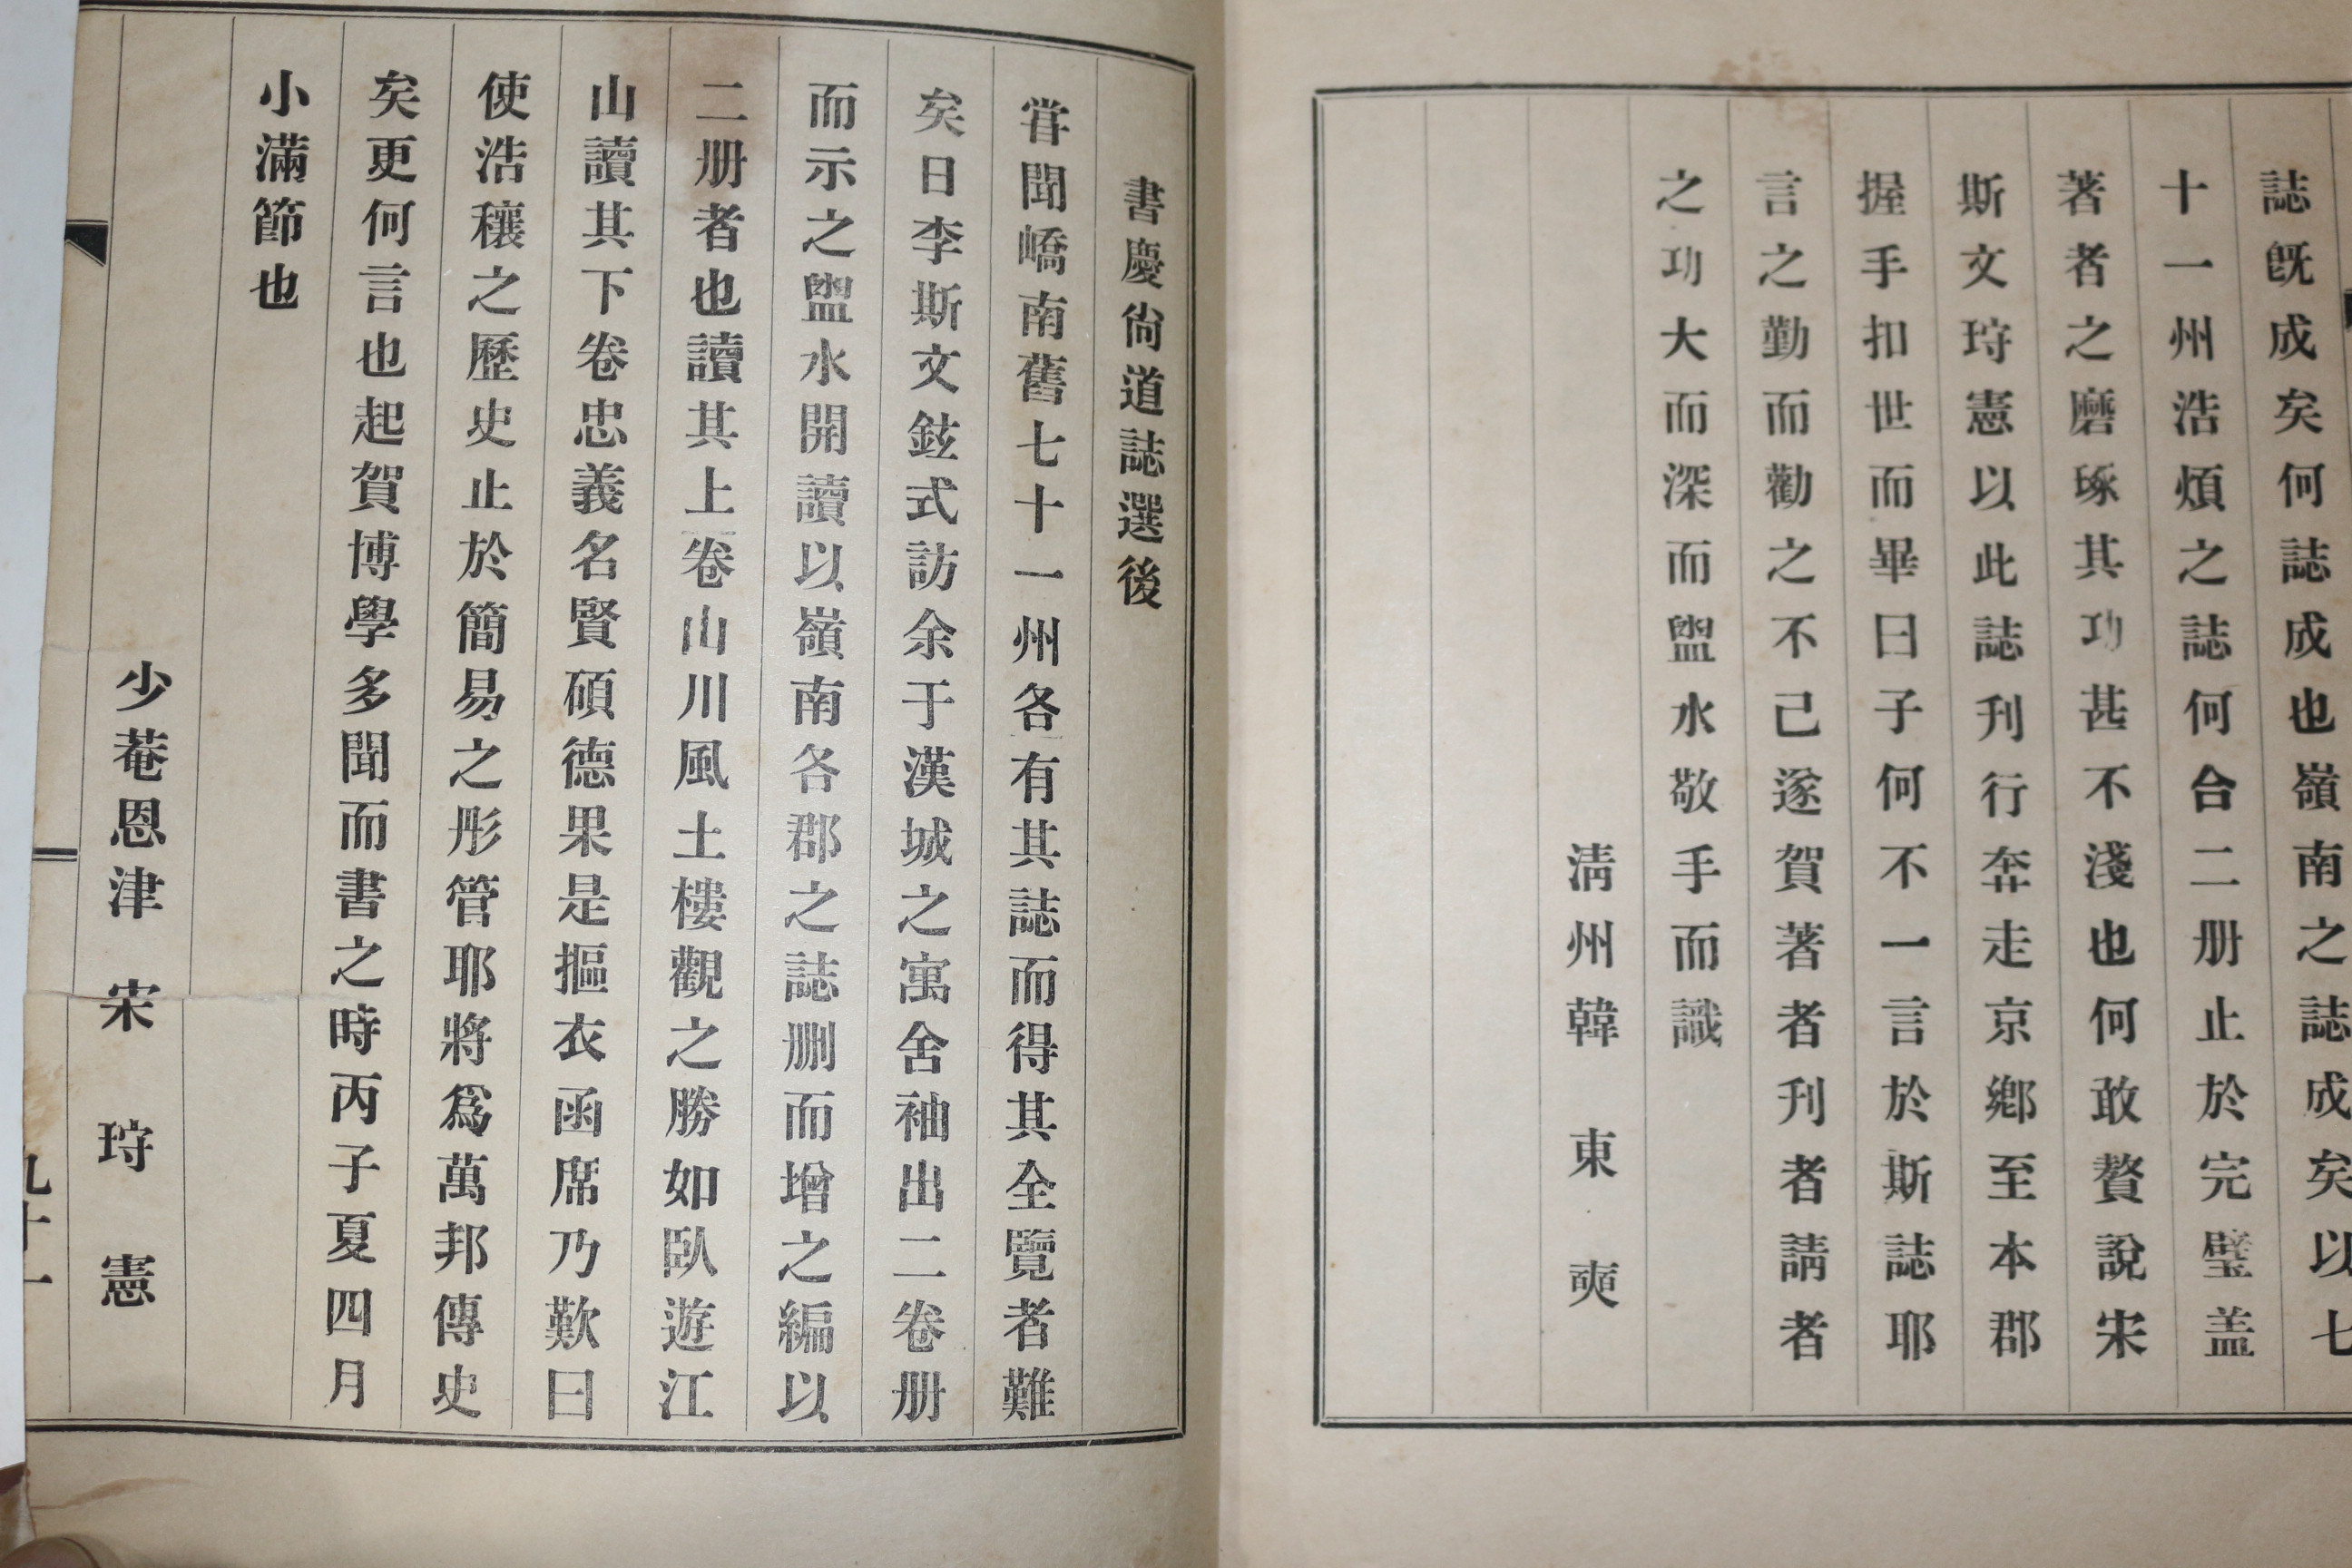 誌旣成矣何誌成也嶺南之誌成矣以七
十一州浩煩之誌何合二册止於完璧盖
著者之磨琢其功甚不淺也何敢贅說宋
斯文㺭憲以此誌刋行奔走京鄕至本郡
握手扣世而畢曰子何不一言於斯誌耶
言之勤而勸之不已遂賀著者刋者請者
之功大而深而盥水敬手而識
淸州韓東奭
書慶尙道誌選後
甞聞嶠南舊七十一州各有其誌而得其全覽者難
矣日李斯文鉉式訪余于漢城之寓舍袖出二卷册
而示之盥水開讀以嶺南各郡之誌删而增之編以
二册者也讀其上卷山川風土樓觀之勝如臥遊江
山讀其下卷忠義名賢碩德果是摳衣函席乃歎曰
使浩穰之歷史止於簡易之彤管耶將爲萬邦傳史
矣更何言也起賀博學多聞而書之時丙子夏四月
小滿節也
少菴恩津宋㺭憲
九十一